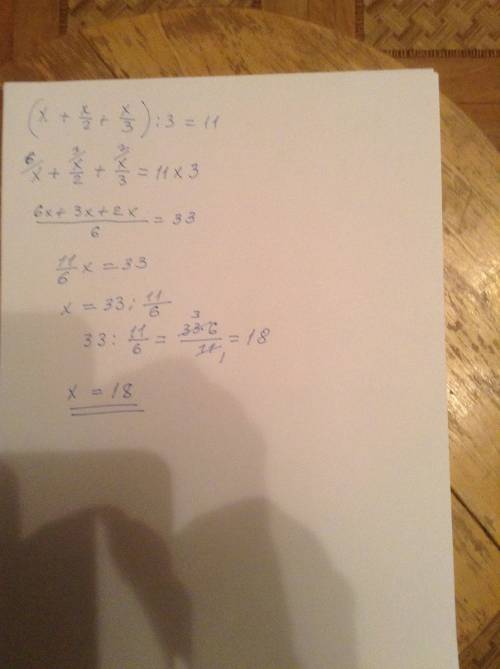 (x + x/2 + x/3) : 3 = 11
6/ x + 3/ x/2 + 2/ x/3 = 11 x 3
6x + 3x + 2x / 6 = 33
11/6 x = 33
x = 33 : 11/6
33 : 11/6 = 33·6 / 11 = 18
3
1
x = 18